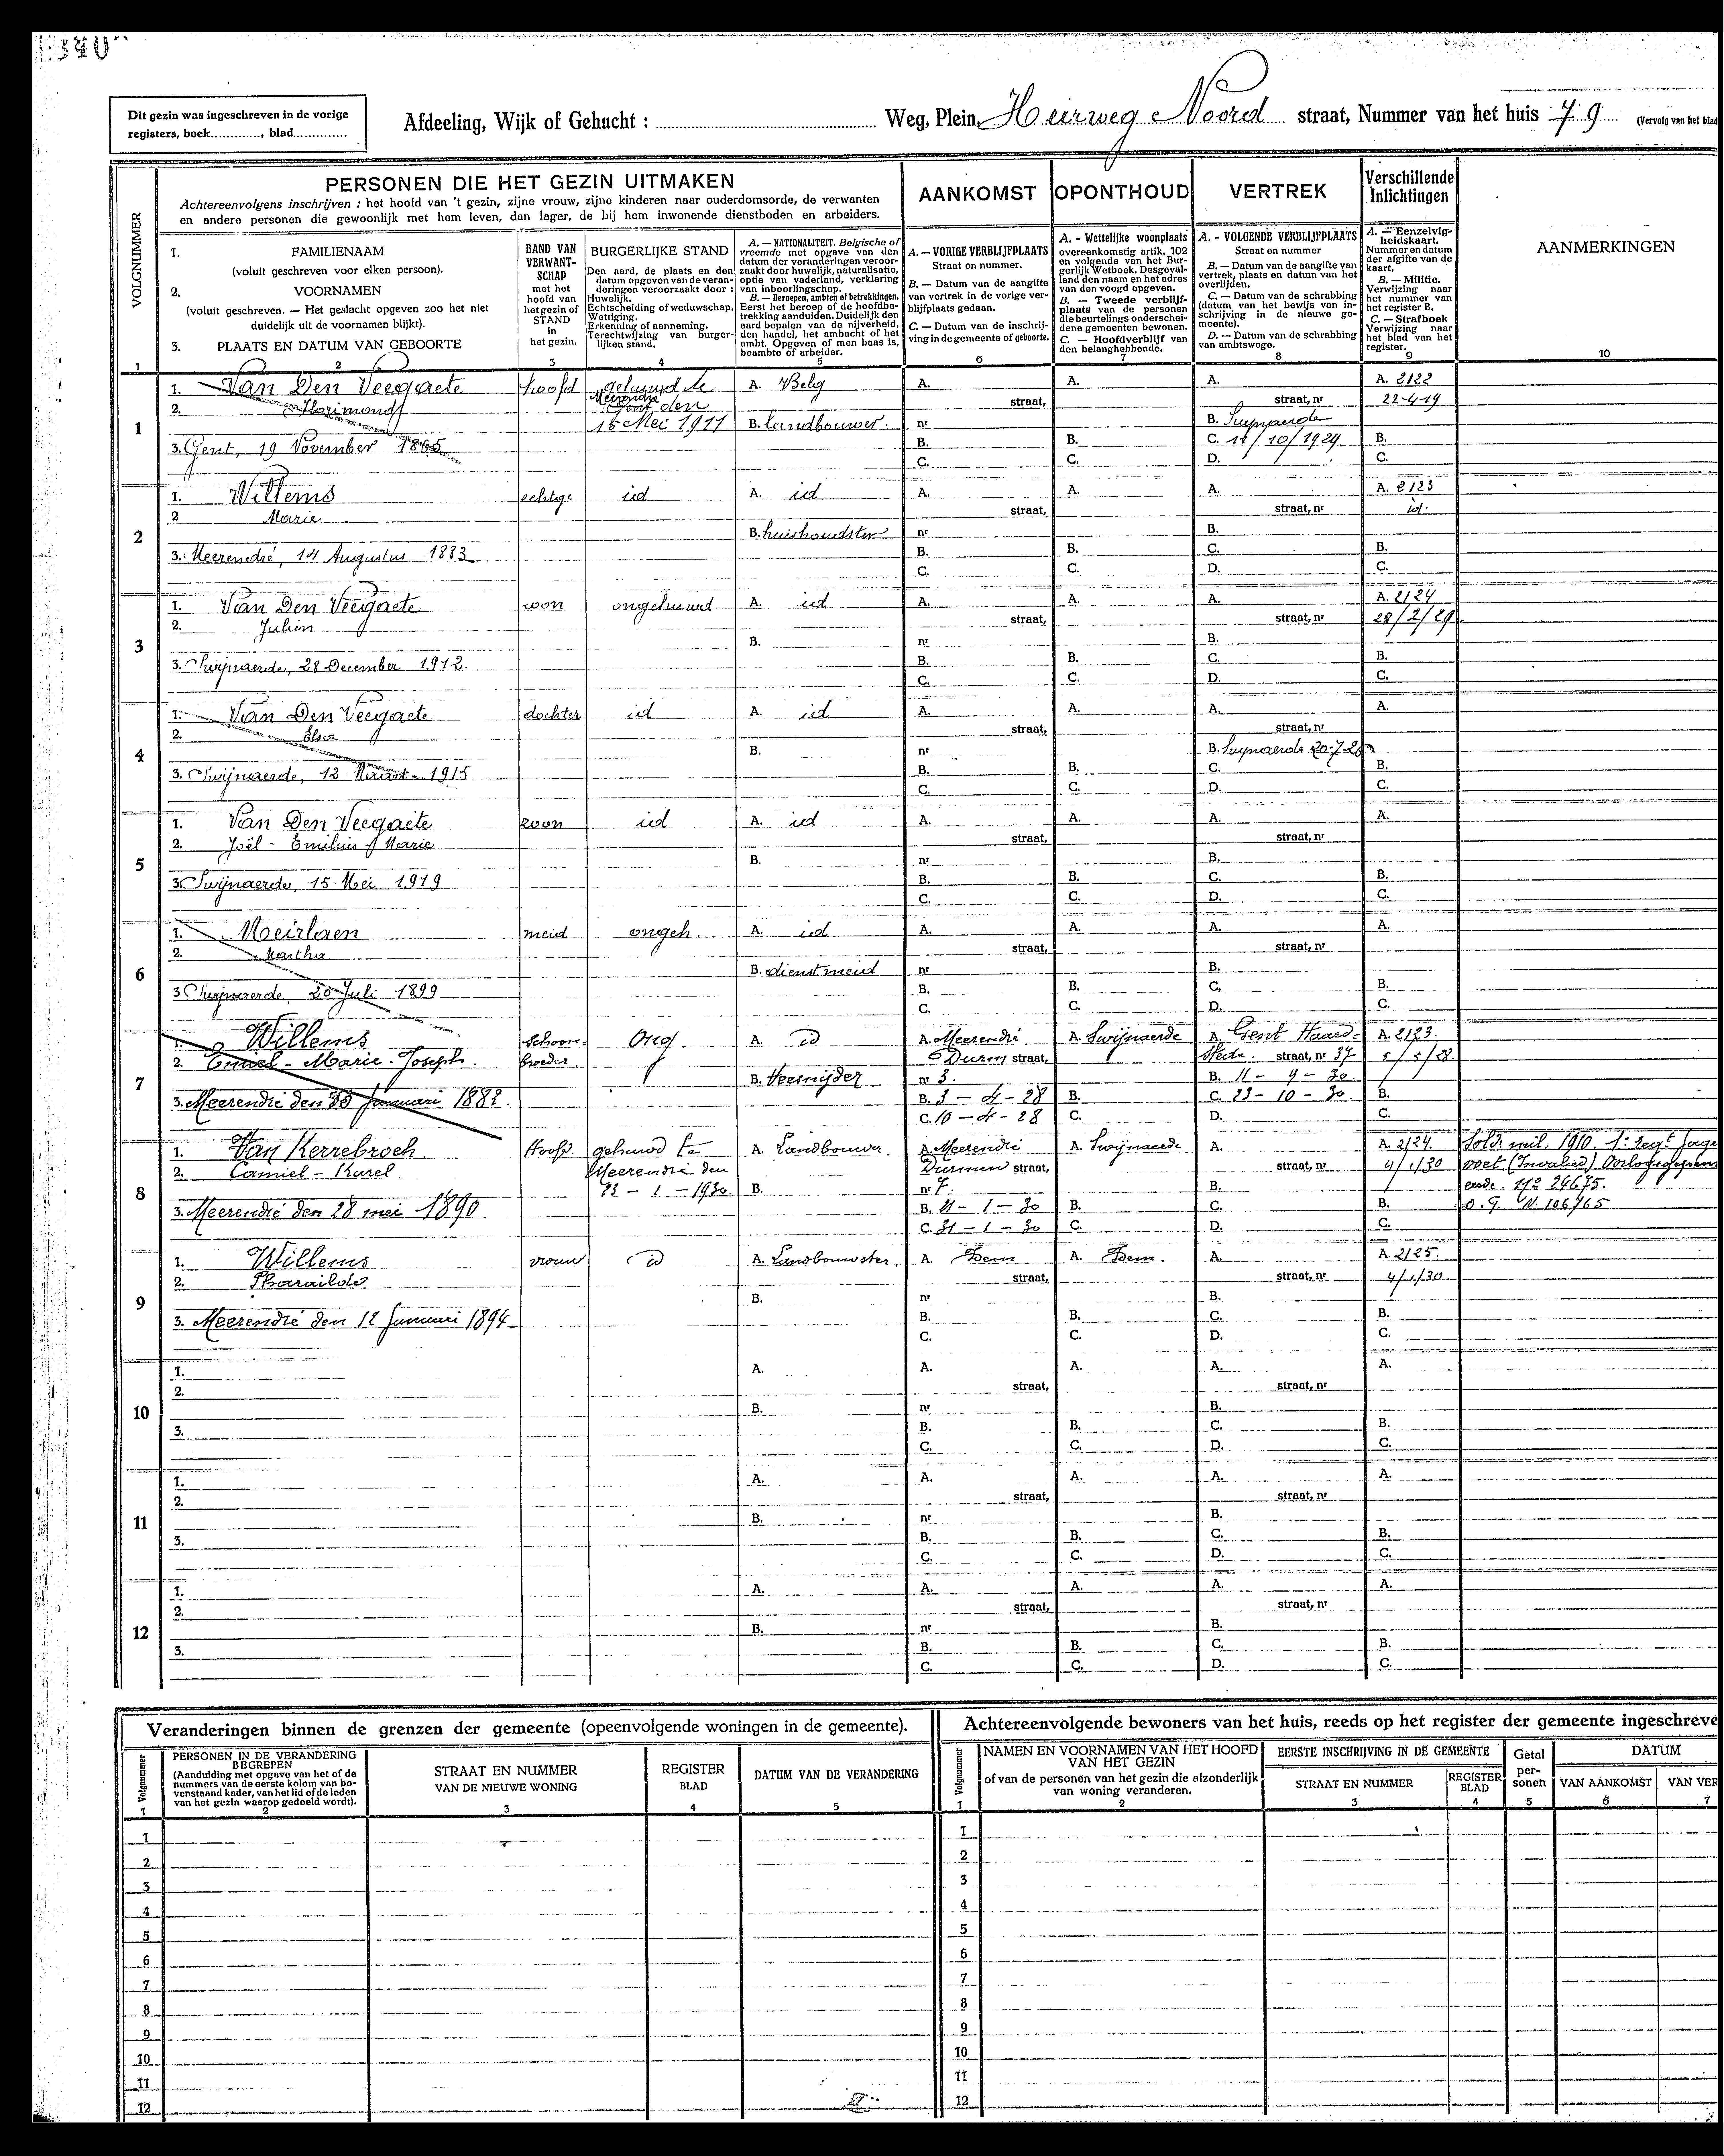 Dit gezin was ingeschreven in de vorige
registers, boek............, blad..............
Afdeeling, Wijk of Gehucht :
Weg, Plein, Heirweg Noord straat, Nummer van het huis 79 (Vervolg van het blad
VOLGNUMMER
PERSONEN DIE HET GEZIN UITMAKEN
Achtereenvolgens inschrijven : het hoofd van 't gezin, zijne vrouw, zijne kinderen naar ouderdomsorde, de verwanten
en andere personen die gewoonlijk met hem leven, dan lager, de bij hem inwonende dienstboden en arbeiders.
AANKOMST
OPONTHOUD
VERTREK
Verschillende
Inlichtingen
AANMERKINGEN
1. FAMILIENAAM
(voluit geschreven voor elken persoon).
2. VOORNAMEN
(voluit geschreven. — Het geslacht opgeven zoo het niet
duidelijk uit de voornamen blijkt).
3. PLAATS EN DATUM VAN GEBOORTE
BAND VAN
VERWANT-
SCHAP
met het
hoofd van
het gezin of
STAND
in
het gezin.
BURGERLIJKE STAND
Den aard, de plaats en den
datum opgeven van de veran-
deringen veroorzaakt door :
Huwelijk.
Echtscheiding of weduwschap.
Wettiging.
Erkenning of aanneming.
Terechtwijzing van burger-
lijken stand.
A. — NATIONALITEIT. Belgische of
vreemde met opgave van den
datum der veranderingen veroor-
zaakt door huwelijk, naturalisatie,
optie van vaderland, verklaring
van inboorlingschap.
B. — Beroepen, ambten of betrekkingen.
Eerst het beroep of de hoofdbe-
trekking aanduiden. Duidelijk den
aard bepalen van de nijverheid,
den handel, het ambacht of het
ambt. Opgeven of men baas is,
beambte of arbeider.
A. — VORIGE VERBLIJFPLAATS
Straat en nummer.
B. — Datum van de aangifte
van vertrek in de vorige ver-
blijfplaats gedaan.
C. — Datum van de inschrij-
ving in de gemeente of geboorte.
A. - Wettelijke woonplaats
overeenkomstig artik. 102
en volgende van het Bur-
gerlijk Wetboek. Desgeval-
lend den naam en het adres
van den voogd opgeven.
B. — Tweede verblijf-
plaats van de personen
die beurtelings onderschei-
dene gemeenten bewonen.
C. — Hoofdverblijf van
den belanghebbende.
A. - VOLGENDE VERBLIJFPLAATS
Straat en nummer
B. — Datum van de aangifte van
vertrek, plaats en datum van het
overlijden.
C. — Datum van de schrabbing
(datum van het bewijs van in-
schrijving in de nieuwe ge-
meente).
D. — Datum van de schrabbing
van ambtswege.
A. — Eenzelvig-
heidskaart.
Nummer en datum
der afgifte van de
kaart.
B. — Militie.
Verwijzing naar
het nummer van
het register B.
C. — Strafboek
Verwijzing naar
het blad van het
register.
1 2 3 4 5 6 7 8 9 10
1
1. Van Den Veegaete hoofd gehuwd te A. Belg A. A. A. A. 2122
Meerendré
2. Florimond Gent den straat, straat, nr 22-4-19
15 Mei 1911 B. landbouwer. nr B. Swynaerde
3. Gent, 19 November 1865 B. B. C. 11/10/1929 B.
C. C. D. C.
2
1. Willems echtge id A. id A. A. A. A. 2123
2 Marie straat, straat, nr id.
B. huishoudster nr B.
3. Meerendré, 14 Augustus 1883 B. B. C. B.
C. C. D. C.
3
1. Van Den Veegaete zoon ongehuwd A. id A. A. A. A. 2124
2. Julien straat, straat, nr 28/2/29
B. nr B.
3. Swijnaerde, 28 December 1912 B. B. C. B.
C. C. D. C.
4
1. Van Den Veegaete dochter id A. id A. A. A. A.
2. Elsa straat, straat, nr
B. nr B. Swynaerde 20-7-26
3. Swijnaerde, 12 Maart 1915 B. B. C. B.
C. C. D. C.
5
1. Van Den Veegaete zoon id A. id A. A. A. A.
2. Joël - Emilius Marie straat, straat, nr
B. nr B.
3 Swijnaerde, 15 Mei 1919 B. B. C. B.
C. C. D. C.
6
1. Meirlaen meid ongeh. A. id A. A. A. A.
2. Martha straat, straat, nr
B. dienstmeid nr B.
3 Swijnaerde, 20 Juli 1899 B. B. C. B.
C. C. D. C.
7
1. Willems schoon- Ong A. id A. Meerendré A. Swijnaerde A. Gent Haard- A. 2123.
2. Emiel - Marie - Joseph. broeder. Durm straat, straat, nr 37 5/5/28.
B. nr 3. B. 11 - 9 - 30.
3. Meerendré den Januari 1882. B. 3 - 4 - 28 B. C. 23 - 10 - 30. B.
C. 10 - 4 - 28 C. D. C.
8
1. Van Kerrebroek Hoofd. gehuwd te A. Landbouwer A. Meerendré A. Swijnaerde A. A. 2124. Sold. mil. 1910. 1e regt
2. Camiel - Karel. Meerendré den Durmen straat, straat, nr 4/1/30 voet (Invalied)
23 - 1 - 1930. B. nr 7. B. Nº 24675.
3. Meerendré den 28 mei 1890. B. 21 - 1 - 30 B. C. B. O.G. N. 106765
C. 31 - 1 - 30 C. D. C.
9
1. Willems vrouw id A. Landbouwster. A. Idem A. Idem. A. A. 2125.
2. Pharaïlde straat, straat, nr 4/1/30.
B. nr B.
3. Meerendré den 12 Januari 1894 B. B. C. B.
C. C. D. C.
10
1. A. A. A. A. A.
2. straat, straat, nr
B. nr B.
3. B. B. C. B.
C. C. D. C.
11
1. A. A. A. A. A.
2. straat, straat, nr
B. nr B.
3. B. B. C. B.
C. C. D. C.
12
1. A. A. A. A. A.
2. straat, straat, nr
B. nr B.
3. B. B. C. B.
C. C. D. C.
Veranderingen binnen de grenzen der gemeente (opeenvolgende woningen in de gemeente).
Volgnummer
PERSONEN IN DE VERANDERING
BEGREPEN
(Aanduiding met opgave van het of de
nummers van de eerste kolom van bo-
venstaand kader, van het lid of de leden
van het gezin waarop gedoeld wordt).
STRAAT EN NUMMER
VAN DE NIEUWE WONING
REGISTER
BLAD
DATUM VAN DE VERANDERING
1 2 3 4 5
1
2
3
4
5
6
7
8
9
10
11
12
Achtereenvolgende bewoners van het huis, reeds op het register der gemeente ingeschreve
Volgnummer
NAMEN EN VOORNAMEN VAN HET HOOFD
VAN HET GEZIN
of van de personen van het gezin die afzonderlijk
van woning veranderen.
EERSTE INSCHRIJVING IN DE GEMEENTE
STRAAT EN NUMMER
REGISTER
BLAD
Getal
per-
sonen
DATUM
VAN AANKOMST
VAN VER
1 2 3 4 5 6 7
1
2
3
4
5
6
7
8
9
10
11
12